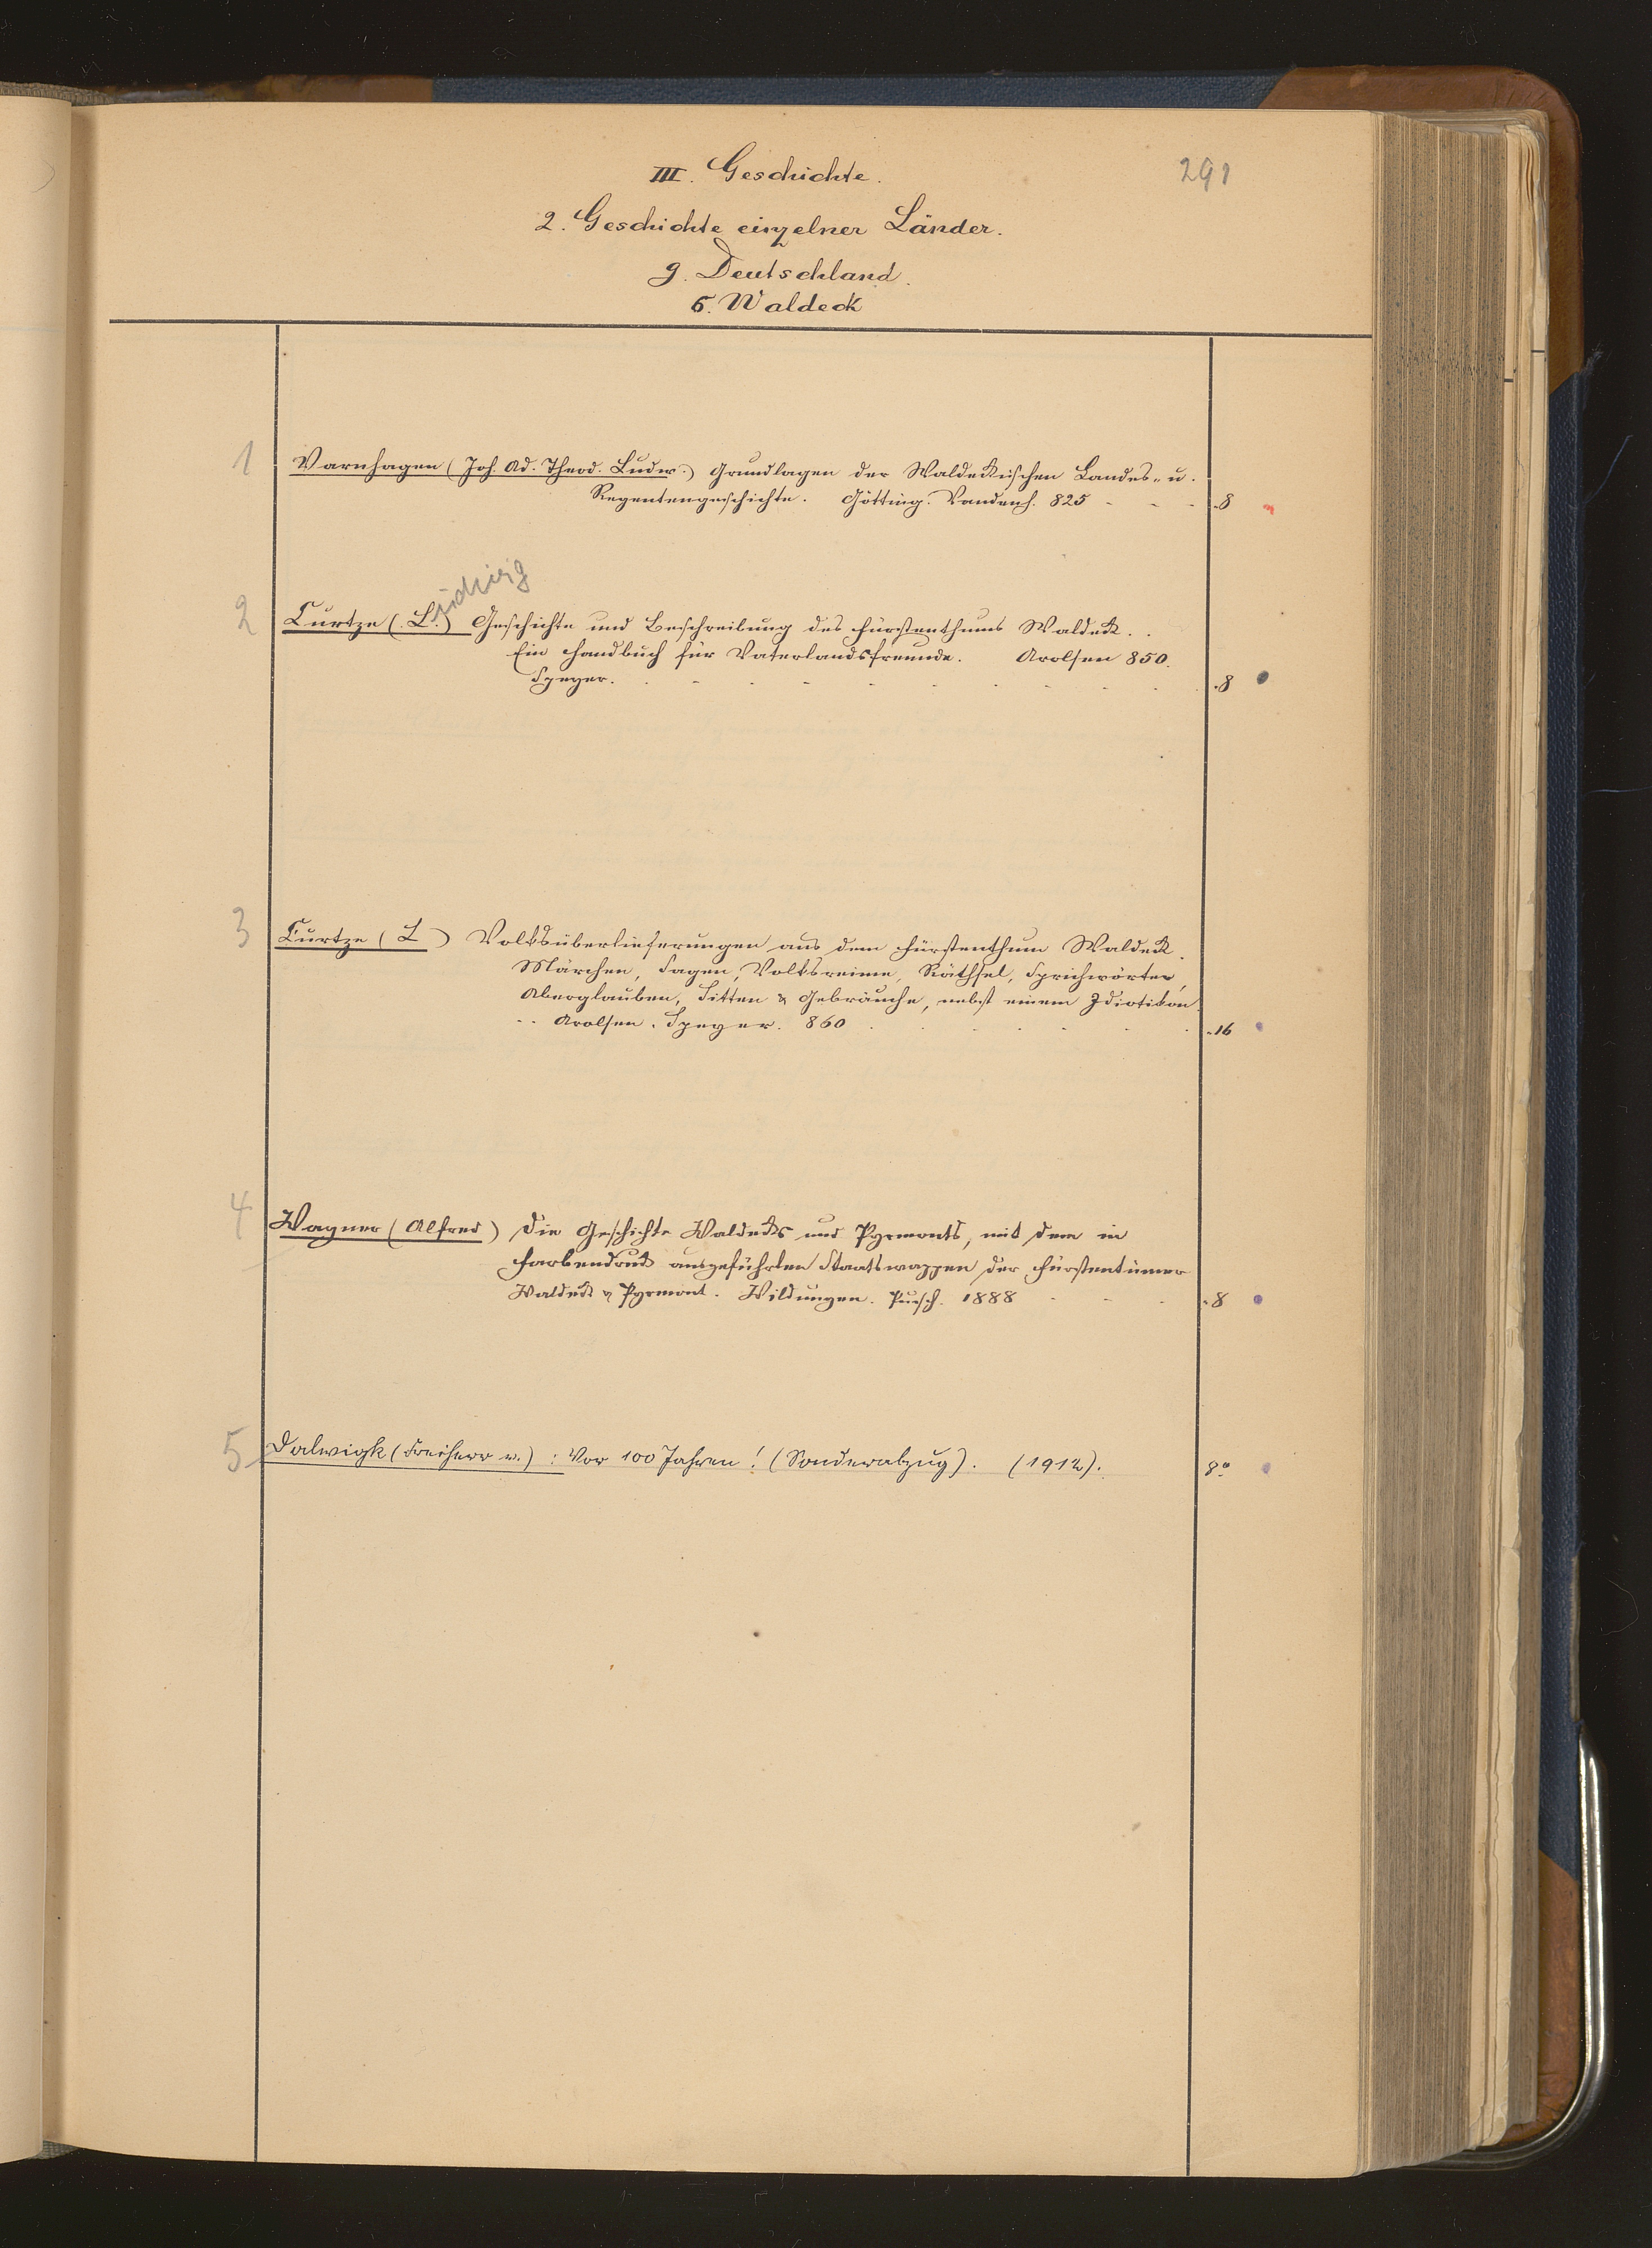 291
III. Geschichte.
2. Geschichte einzelner Länder.
g. Deutschland.
6. Waldeck
1 Varnhagen (Joh. Ad. Theod. Ludw.) Grundlagen der Waldeckischen Landes- u.
Regentengeschichte. Götting. Vandenh. 825 - - - .8
udwig
2 Curtze (L.) Geschichte und Beschreibung des Fürstenthums Waldeck.
Ein Handbuch für Vaterlandsfreunde. Arolsen 850.
Speyer. .8
3 Curtze (L) Volksüberlieferungen aus dem Fürstenthum Waldeck.
Märchen, Sagen, Volksreime, Räthsel, Sprichwörter,
Aberglauben, Sitten & Gebräuche, nebst einem Idiotikon.
Arolsen. Speyer. 860 .16
4 Wagner (Alfred) Die Geschichte Waldecks und Pyrmonts, mit dem in
Farbendruck ausgeführten Staatswappen der Fürstentümer
Waldeck & Pyrmont. Wildungen. Pusch. 1888 .8
5 Dalwigk (Freiherr v.) : Vor 100 Jahren! (Sonderabzug). (1912). 8°